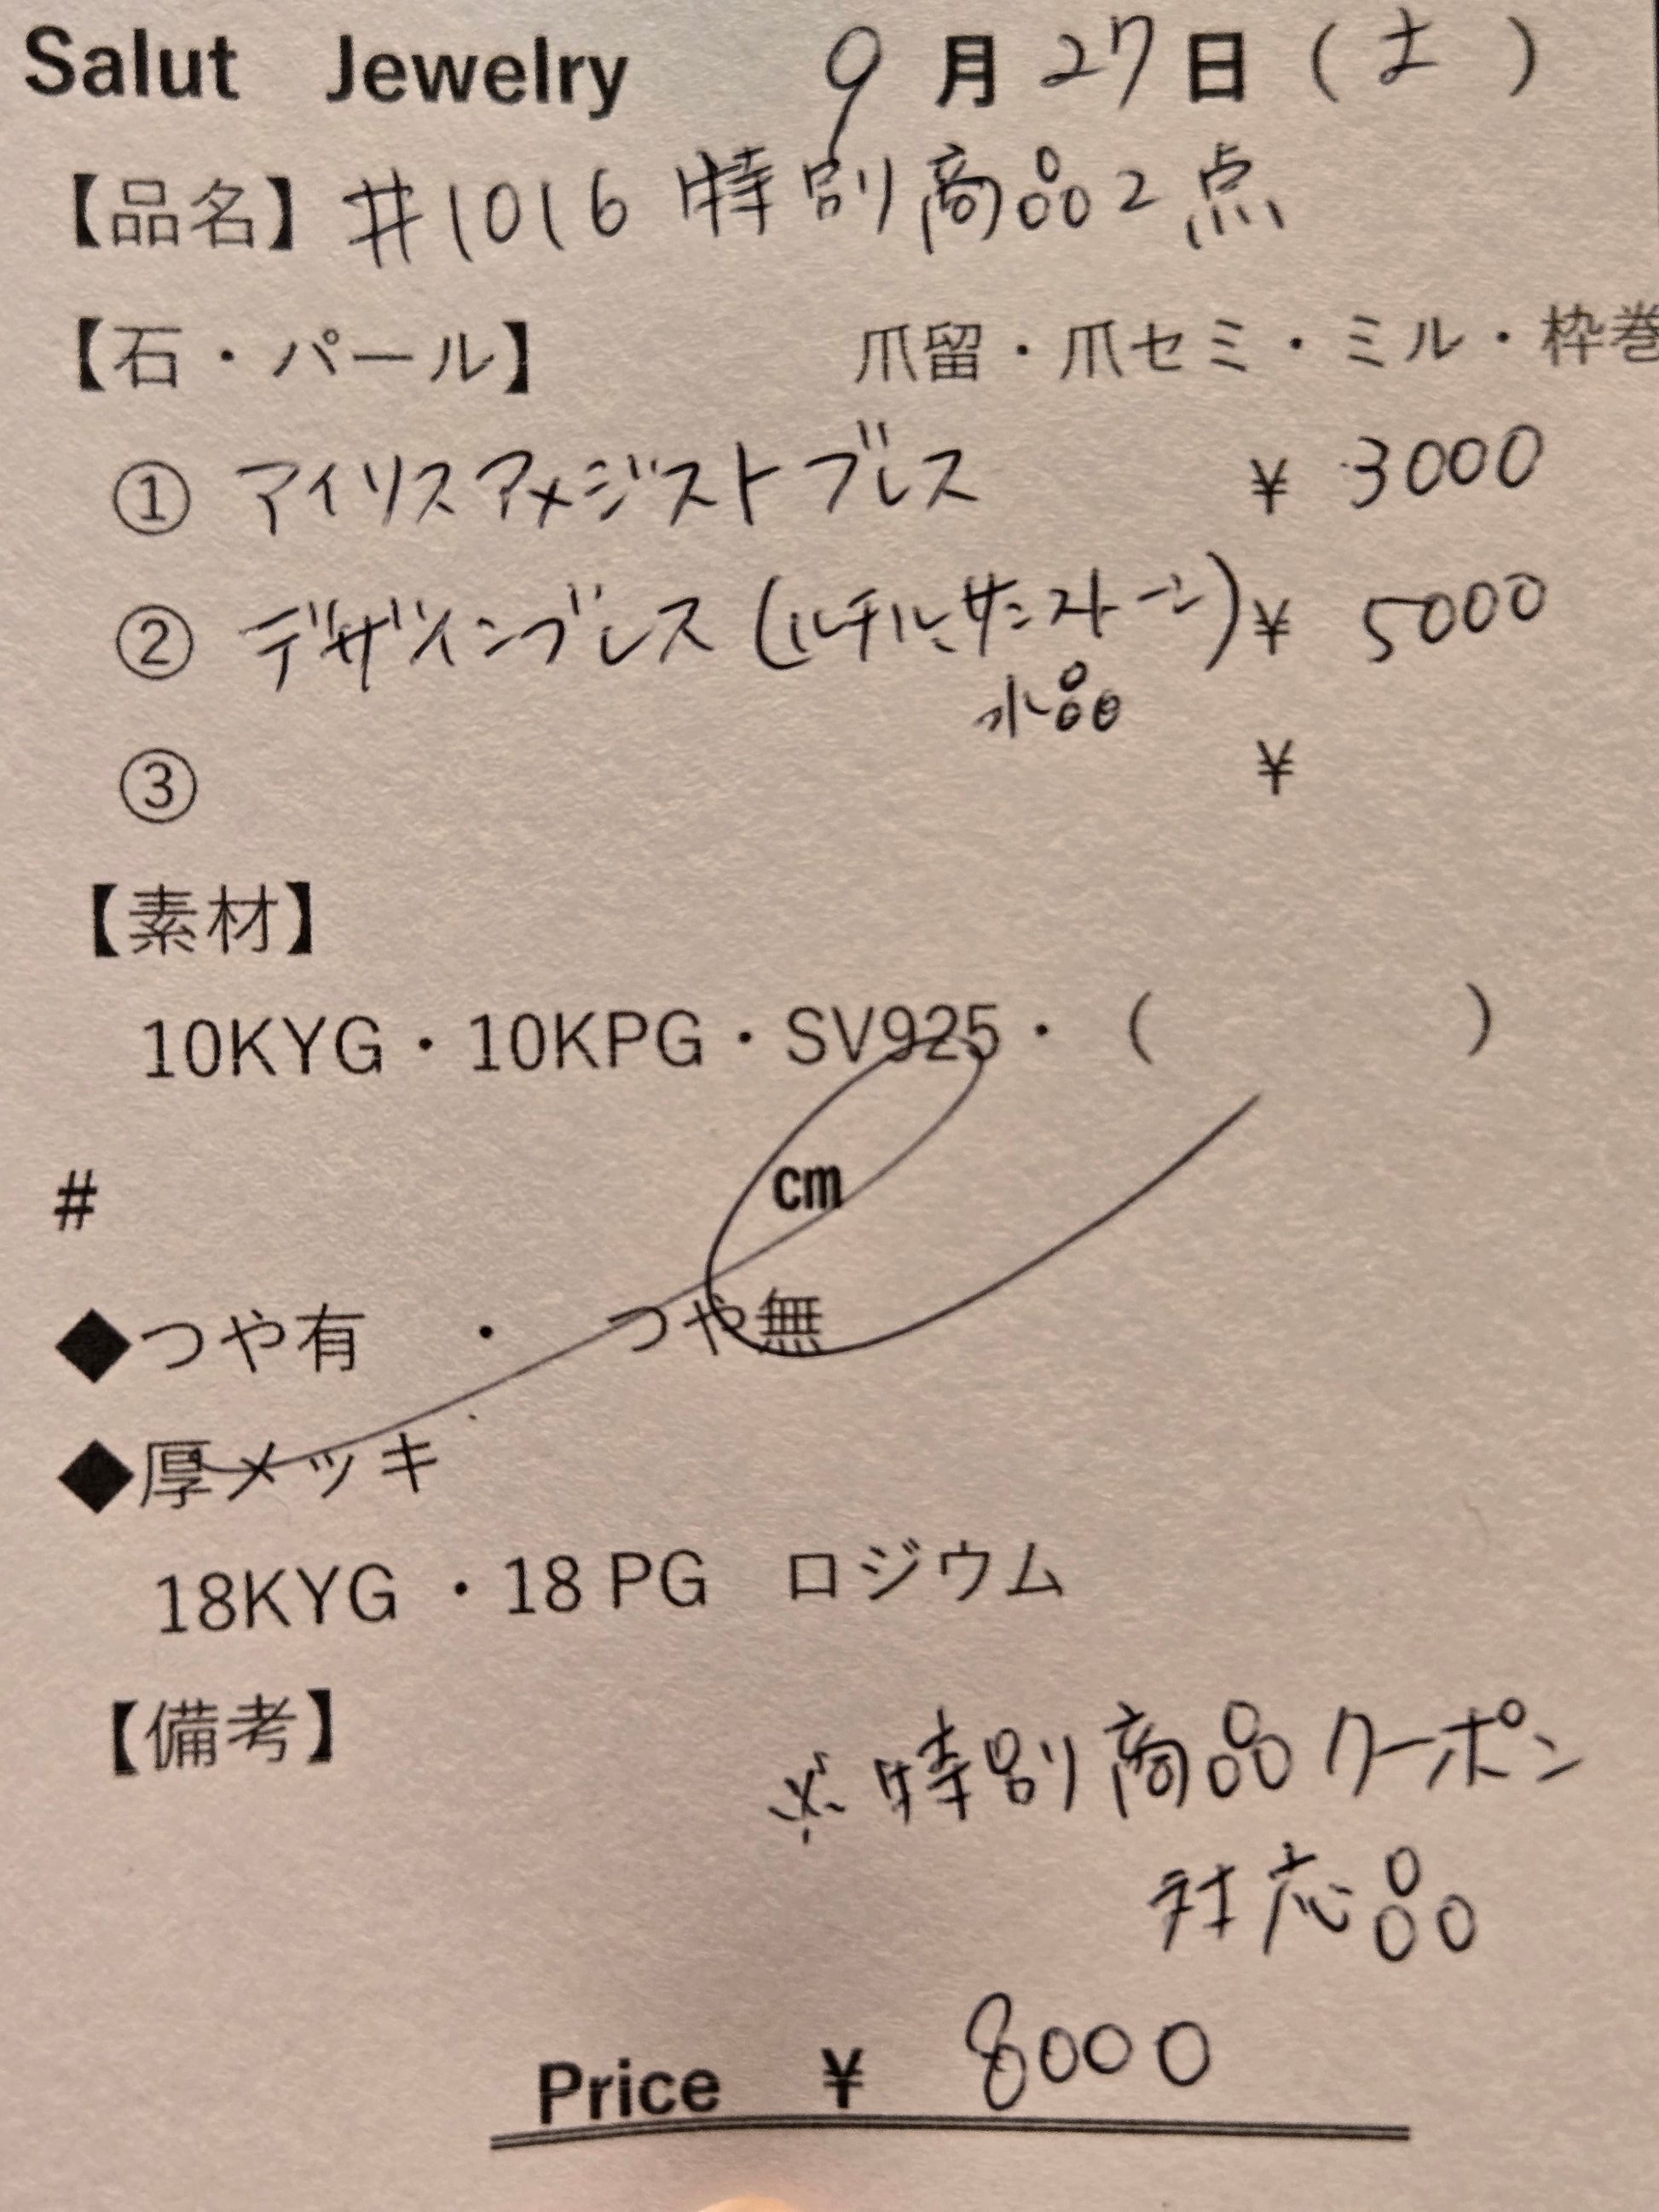 Salut Jewelry 9月27日(土)
【品名】#1016 特別商品2点
【石・パール】 爪留・爪セミ・ミル・枠巻
① アイリスアメジストブレス ¥ 3000
② デザインブレス(ルチル、サンストーン) ¥ 5000
水晶
③ ¥
【素材】
10KYG・10KPG・SV925・( )
# cm
◆つや有 ・ つや無
◆厚メッキ
18KYG ・18 PG ロジウム
【備考】
※特別商品クーポン
対応品
Price ¥ 8000